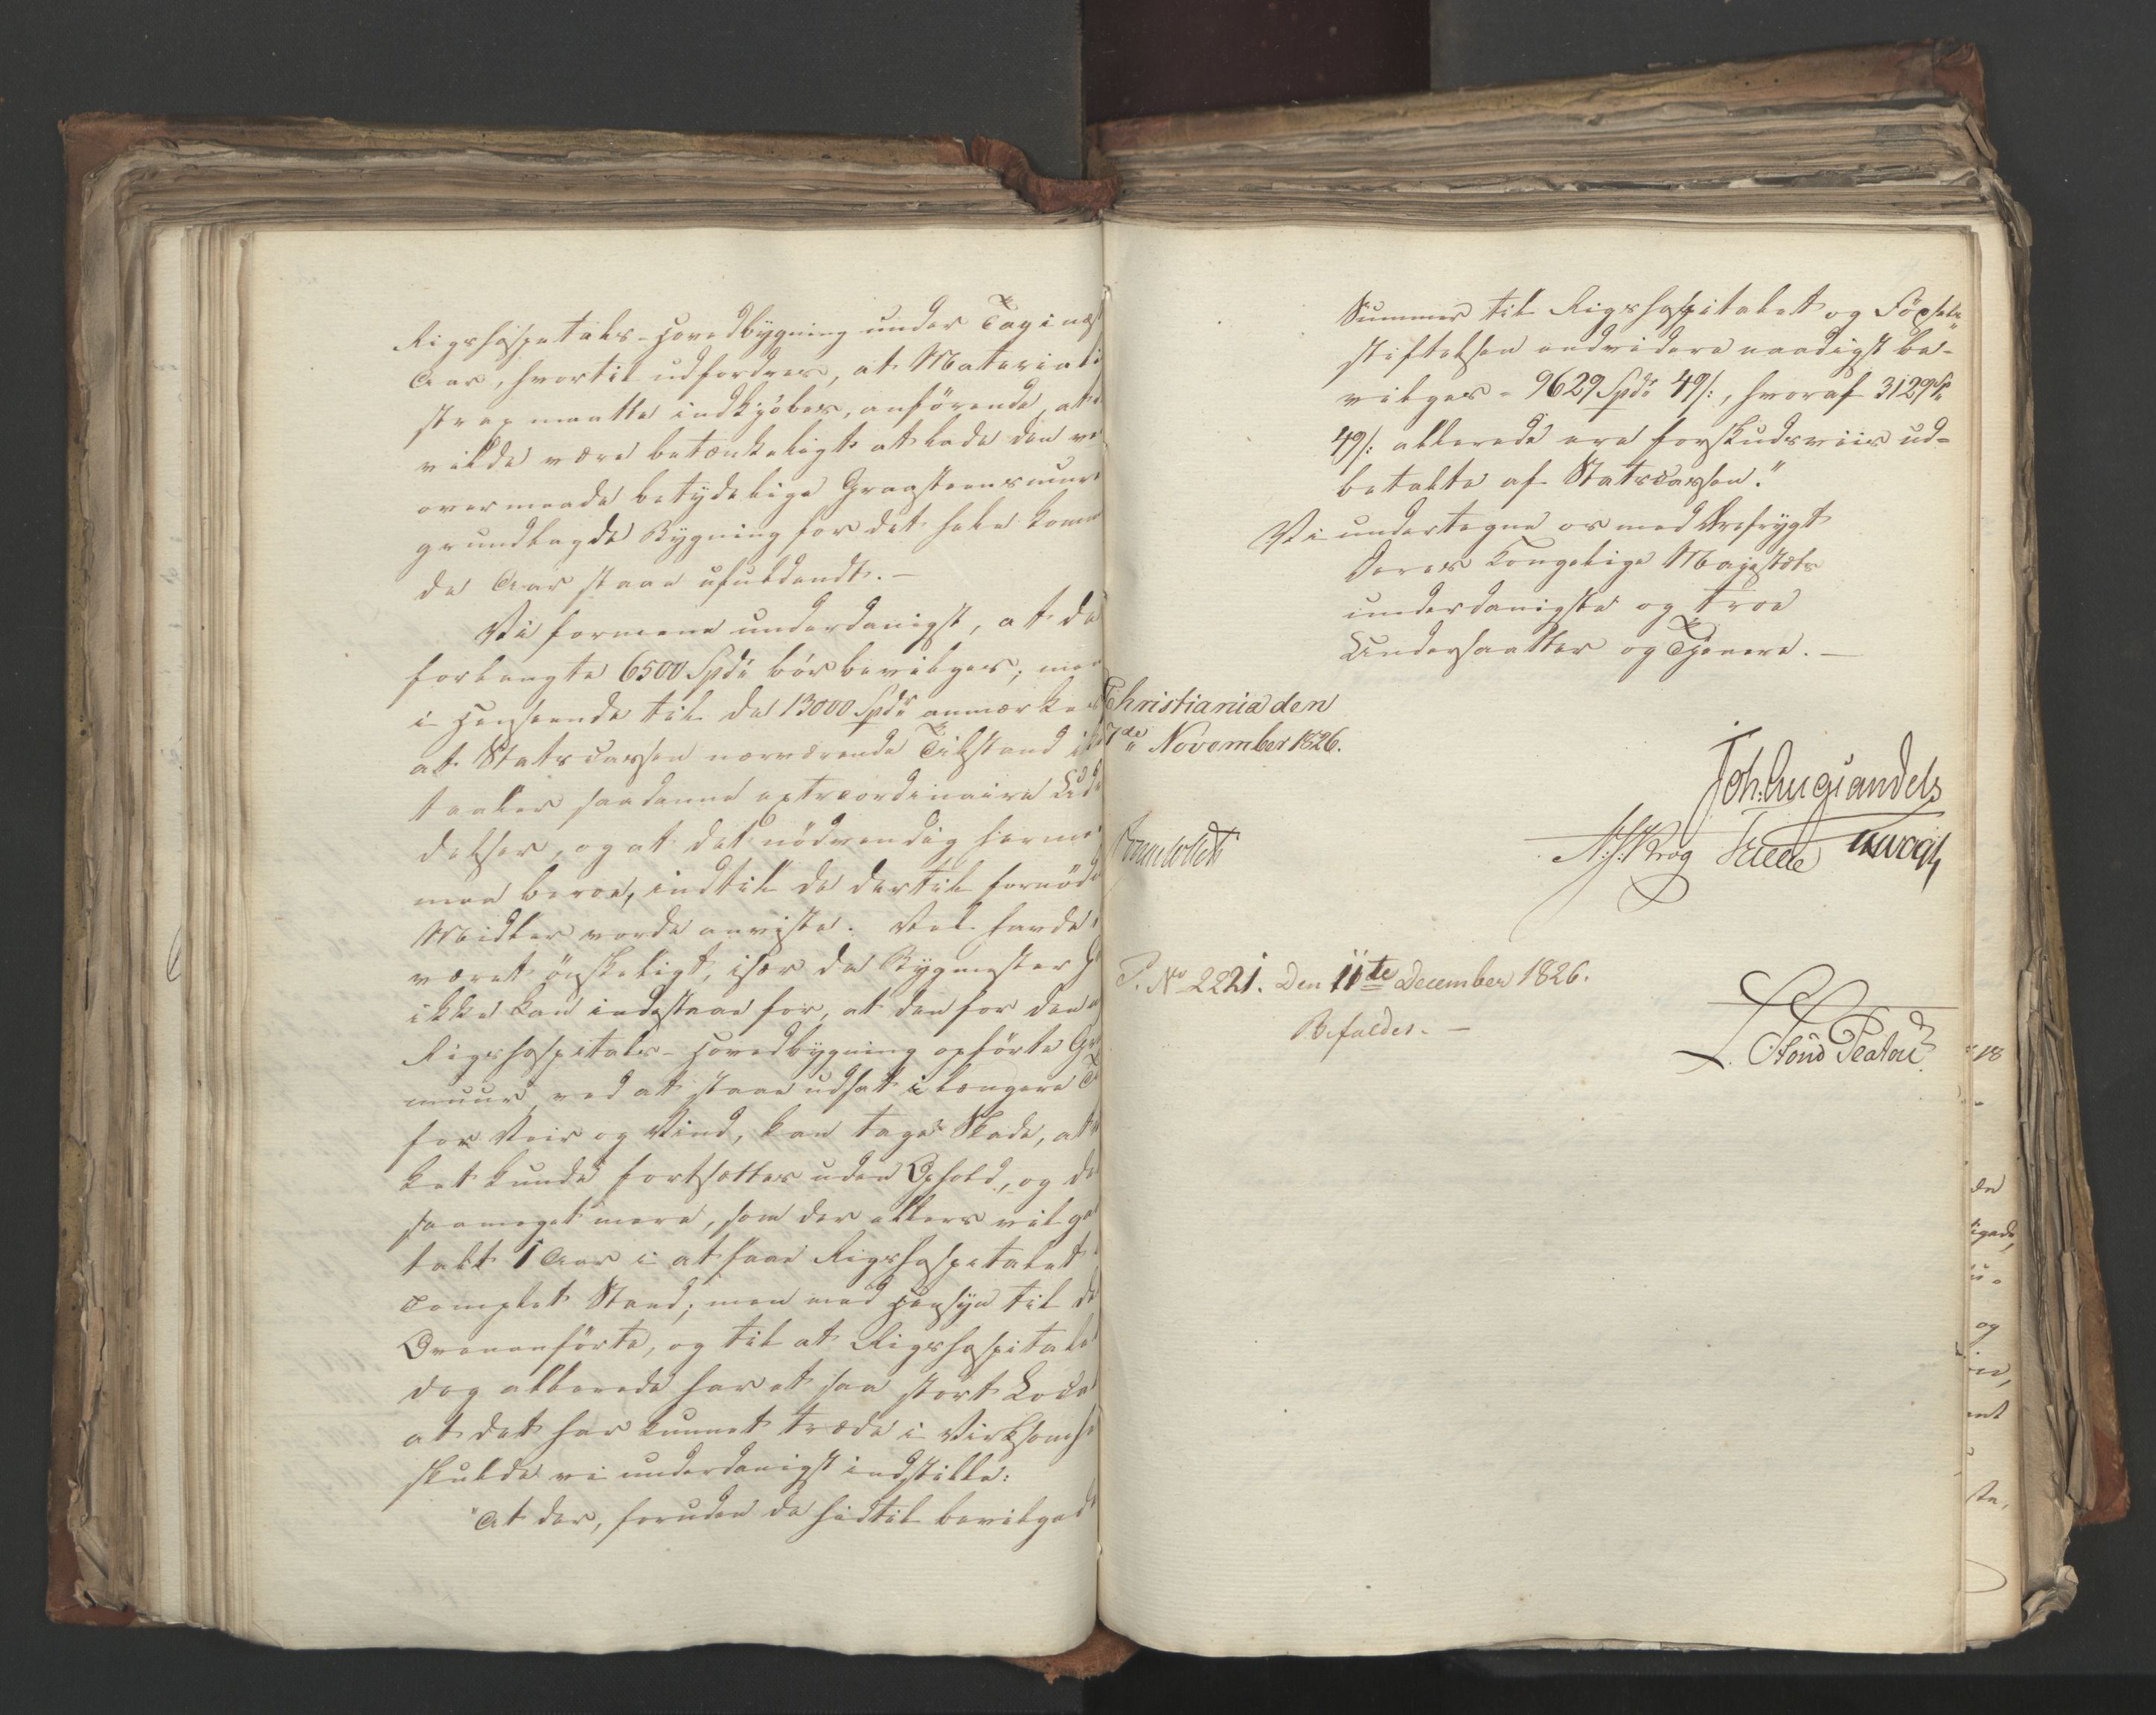 Rigshospitals-Hovedbygning under Tag i næst
Aar, hvortil udfordres, at Materiali
strax maatte indkjöbes, anförende, at
vilde være betænkeligt at lade den ved
overmaade betydelige Graasteensmure
grundlagde Bygning for det hele komm
de Aar staae ufuldendt. –
Vi formene underdanigst, at de
forlangte 6500 Spdr bör bevilges; men
i Henseende til de 13000 Spdr anmærkes
at Statscassen nærværende Tilstand ik
taaler saadanne extraordinaire Ud
delser, og at det nödvendig herme
maa beroe, indtil de dertil fornödn
Midler vorde anviste. Vel havde
været önskeligt, især da Bygmester
ikke kan indestaae for, at den for den
Rigshospitals-Hovedbygning opförte Gr
muur, ved at staae udsat i længere T
for Veir og Vind, kan tage Skade, at
ket kunde fortsættes uden Ophold, og de
saameget mere, som der ellers vil gaa
tabt 1 Aar i at faae Rigshospitalet
complet Stand; men med Hensyn til de
Ovenanförte, og til at Rigshospitalet
dog allerede har et saa stort Local
at det har kunnet træde i Virksomhe
skulde vi underdanigst indstille:
"At der, foruden de hidtil bevilgede
Summer til Rigshospitalet og Födsels-
stiftelsen endvidere naadigst be-
vilges - 9629 Spdr 49/:, hvoraf 3129 Sp
49/: allerede ere forskudsviis ud-
betalte af Statscassen."
Vi undertegne os med Ærefrygt
Deres Kongelige Majestæts
underdanigste og troe
Undersaatter og Tjenere. –
Christiania den
7de November 1826.
Joh: Aug: Sandels
Krog
P. No 2221. Den 11te December 1826.
Bifaldes. –
18
de
og